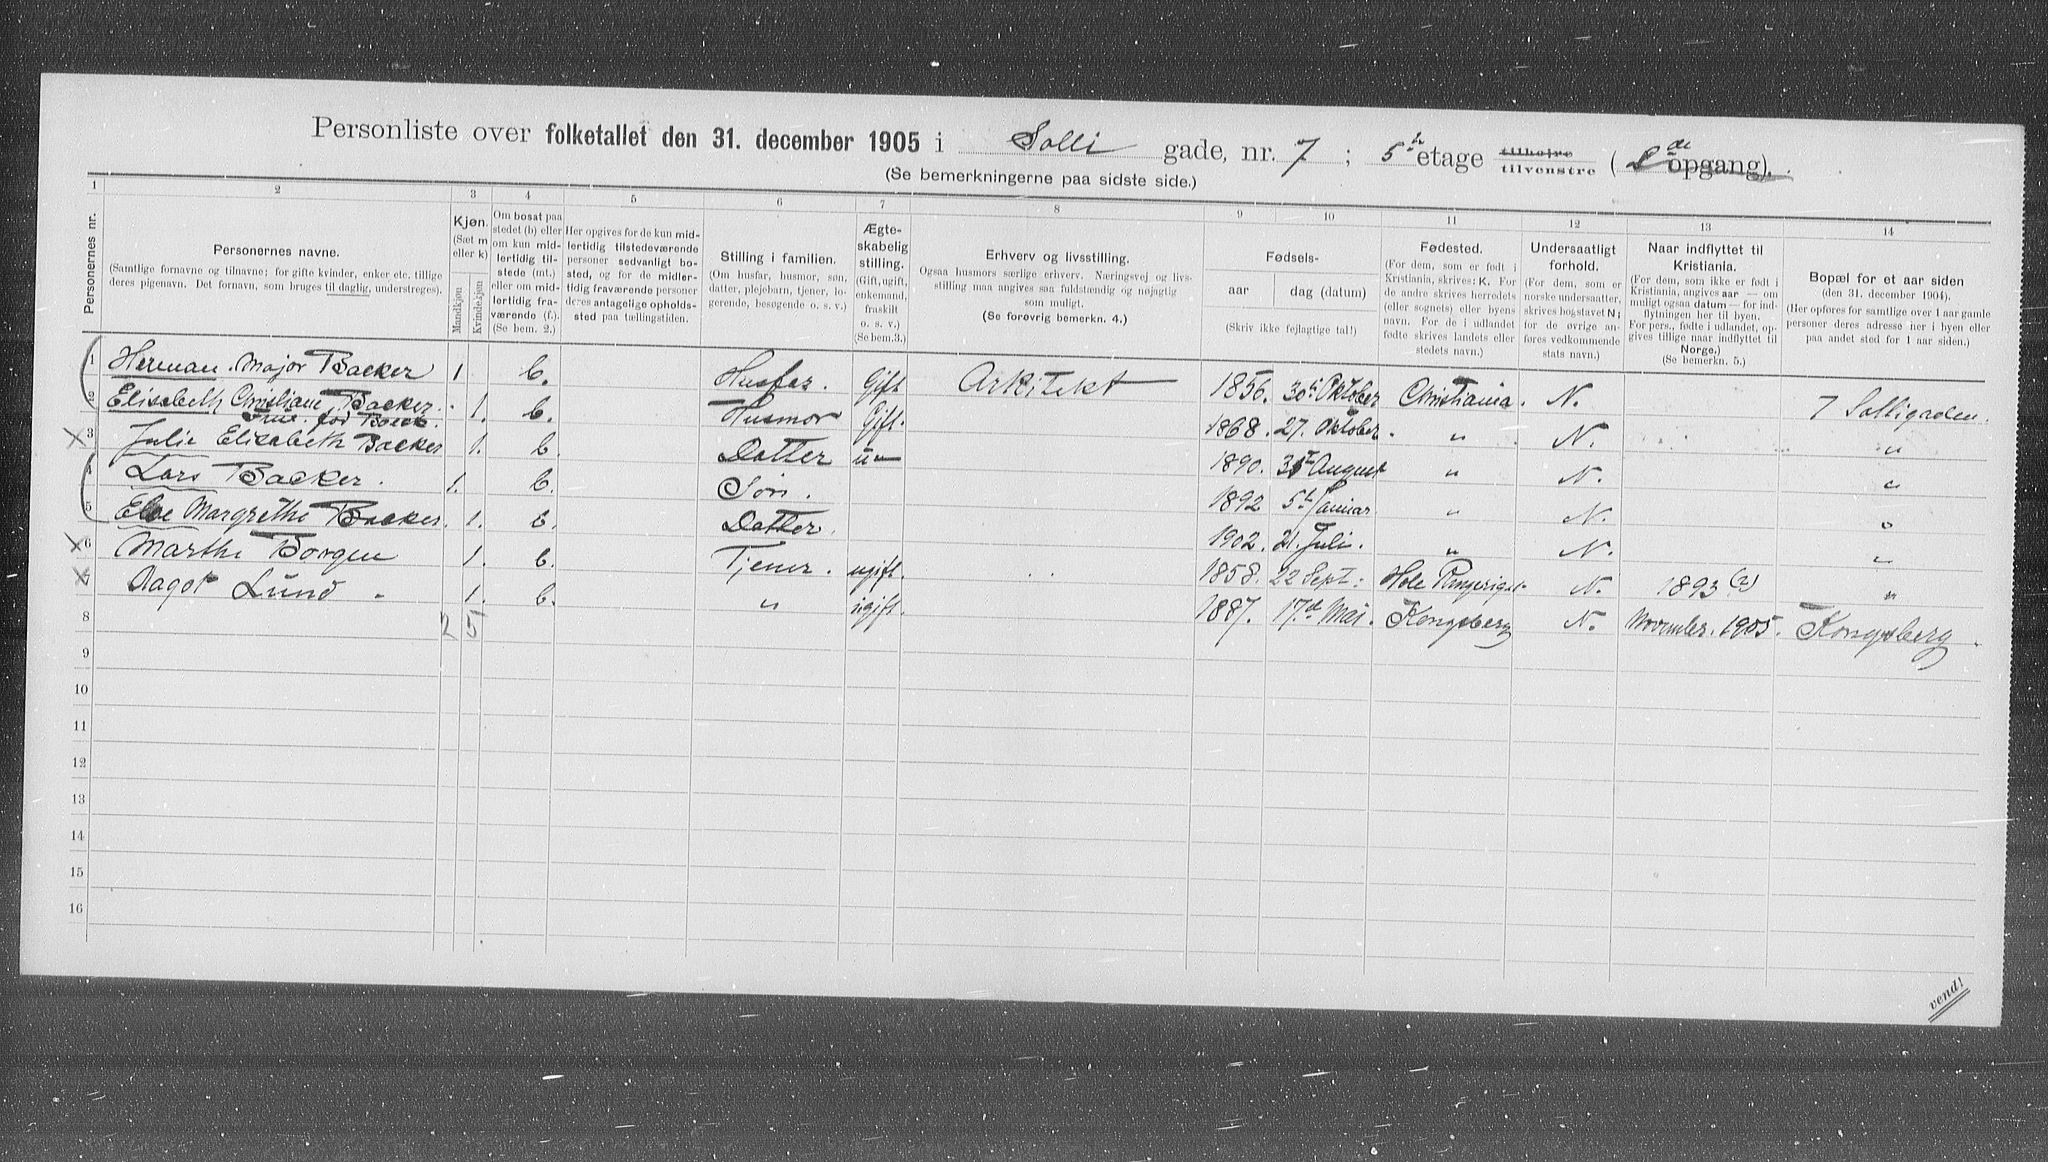 Personliste over folketallet den 31. december 1905 i Solli gade, nr. 7 ; 5 etage tilhøjre tilvenstre ( opgang).
(Se bemerkningerne paa sidste side.)
1 2 3 4 5 6 7 8 9 10 11 12 13 14
Personernes nr.
Personernes navne.
(Samtlige fornavne og tilnavne; for gifte kvinder, enker etc. tillige deres pigenavn. Det fornavn, som bruges til daglig, understreges).
Kjøn.
(Sæt m eller k)
Mandkjøn
Kvindekjøn
Om bosat paa stedet (b) eller om kun midlertidig tilstede (mt.) eller om midlertidig fraværende (f.) (Se bem. 2.)
Her opgives for de kun midlertidig tilstedeværende personer sedvanlig bosted, og for de midlertidig fraværende personer deres antagelige opholdssted paa tællingstiden.
Stilling i familien.
(Om husfar, husmor, søn, datter, plejebarn, tjener, logerende, besøgende o. s. v.)
Ægteskabelig stilling.
(Gift, ugift, enkemand, fraskilt o. s. v.)
(Se bem.3.)
Erhverv og livsstilling.
Ogsaa husmors særlige erhverv. Næringsvej og livsstilling maa angives saa fuldstændig og nøjagtig som muligt.
(Se forøvrig bemerkn. 4.)
Fødsels-
aar
dag (datum)
(Skriv ikke fejlagtige tal!)
Fødested.
(For dem, som er født i Kristiania, skrives: K. For de andre skrives herredets (eller sognets) eller byens navn. For de i udlandet fødte skrives landets eller stedets navn.)
Undersaatligt forhold.
(For dem, som er norske undersaatter, skrives bogstavet N; for de øvrige anføres vedkommende stats navn.)
Naar indflyttet til Kristiania.
(For dem, som ikke er født i Kristiania, angives aar — om muligt ogsaa datum — for indflytningen her til byen. For pers., fødte i udlandet, opgives tillige naar indflyttet til Norge.)
(Se bemerkn. 5.)
Bopæl for et aar siden
(den 31. december 1904)
(Her opføres for samtlige over 1 aar gamle personer deres adresse her i byen eller paa andet sted for 1 aar siden.)
1 Herman Major Backer 1 b. Husfar. Gift Arkitekt 1856. 30 Oktober Christiania. N. 7 Solligaden.
2 Elisabeth Christiane Backer. 1. b. Husmor Gift. 1868. 27. Oktober. " N. "
Frue. før Boeck.
3 Julie Elisabeth Backer 1. b. Datter u— 1890. August " N. "
4 Lars Backer. 1. b. Søn. 1892 5 Januar " N. "
5 Else Margrethe Backer. 1. b. Datter. 1902. 21. Juli. " N. "
6 Marthe Borgen 1. b. Tjener. ugift. 1858. 22 Sept: Hole N. 1893 (?) "
7 Dagot Lund 1. b. " ugift. 1887. 17 Mai. Kongsberg N. November. 1905. Kongsberg.
8 2 5
9
10
11
12
13
14
15
16
vend!